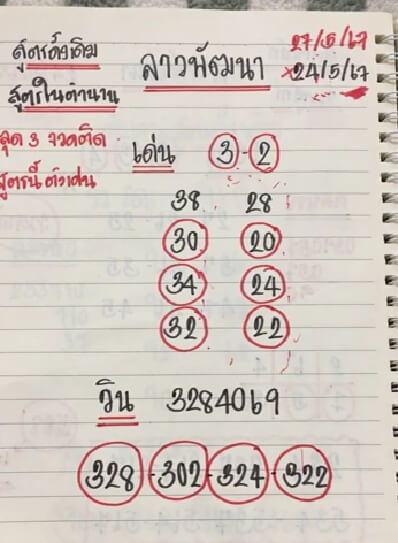 สูตรดั้งเดิม
ลาวพัฒนา
27/5/67
x24/5/67
สูตรในตำนาน
ลุด 3 งวดติด
สูตรนี้ตัวเด่น
เด่น 3-2
38 28
30 20
34 24
32 22
วิน 3284069
328-302-324-322